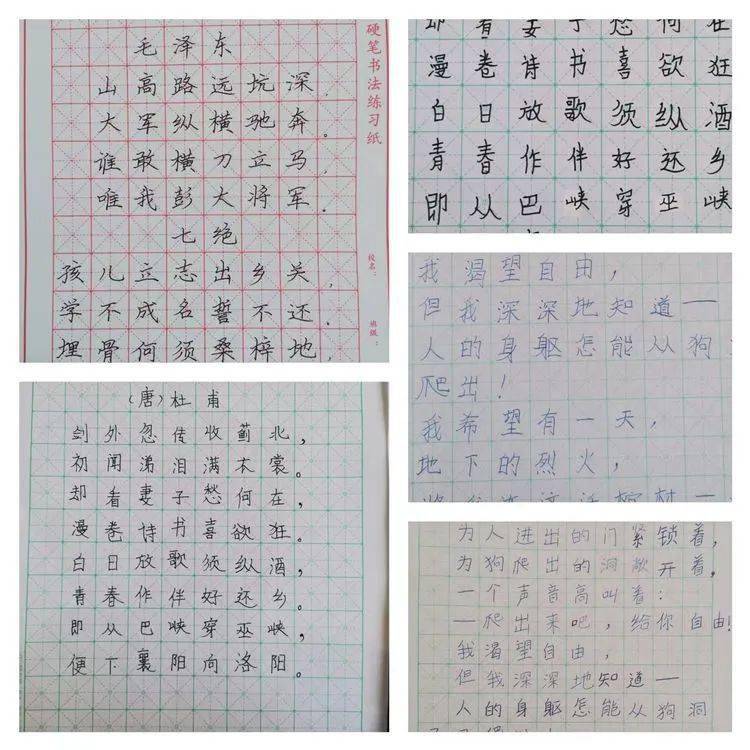 毛泽东
山高路远坑深,
大军纵横驰奔。
谁敢横刀立马,
唯我彭大将军。
七绝
孩儿立志出乡关,
学不成名誓不还.
埋骨何须桑梓地,
硬笔书法练习纸
校名:
班级:
却看妻子愁何在
漫卷诗书喜欲狂
白日放歌须纵酒
青春作伴好还乡
即从巴峡穿巫峡
我渴望自由,
但我深深地知道——
人的身躯怎能从狗
爬出!
我希望有一天,
地下的烈火,
(唐)杜甫
剑外忽传收蓟北,
初闻涕泪满衣裳。
却看妻子愁何在,
漫卷诗书喜欲狂。
白日放歌须纵酒,
青春作伴好还乡。
即从巴峡穿巫峡,
便下襄阳向洛阳。
为人进出的门紧锁着,
为狗爬出的洞敞开着,
一个声音高叫着:
——爬出来吧,给你自由!
我渴望自由,
但我深深地知道——
人的身躯怎能从狗洞